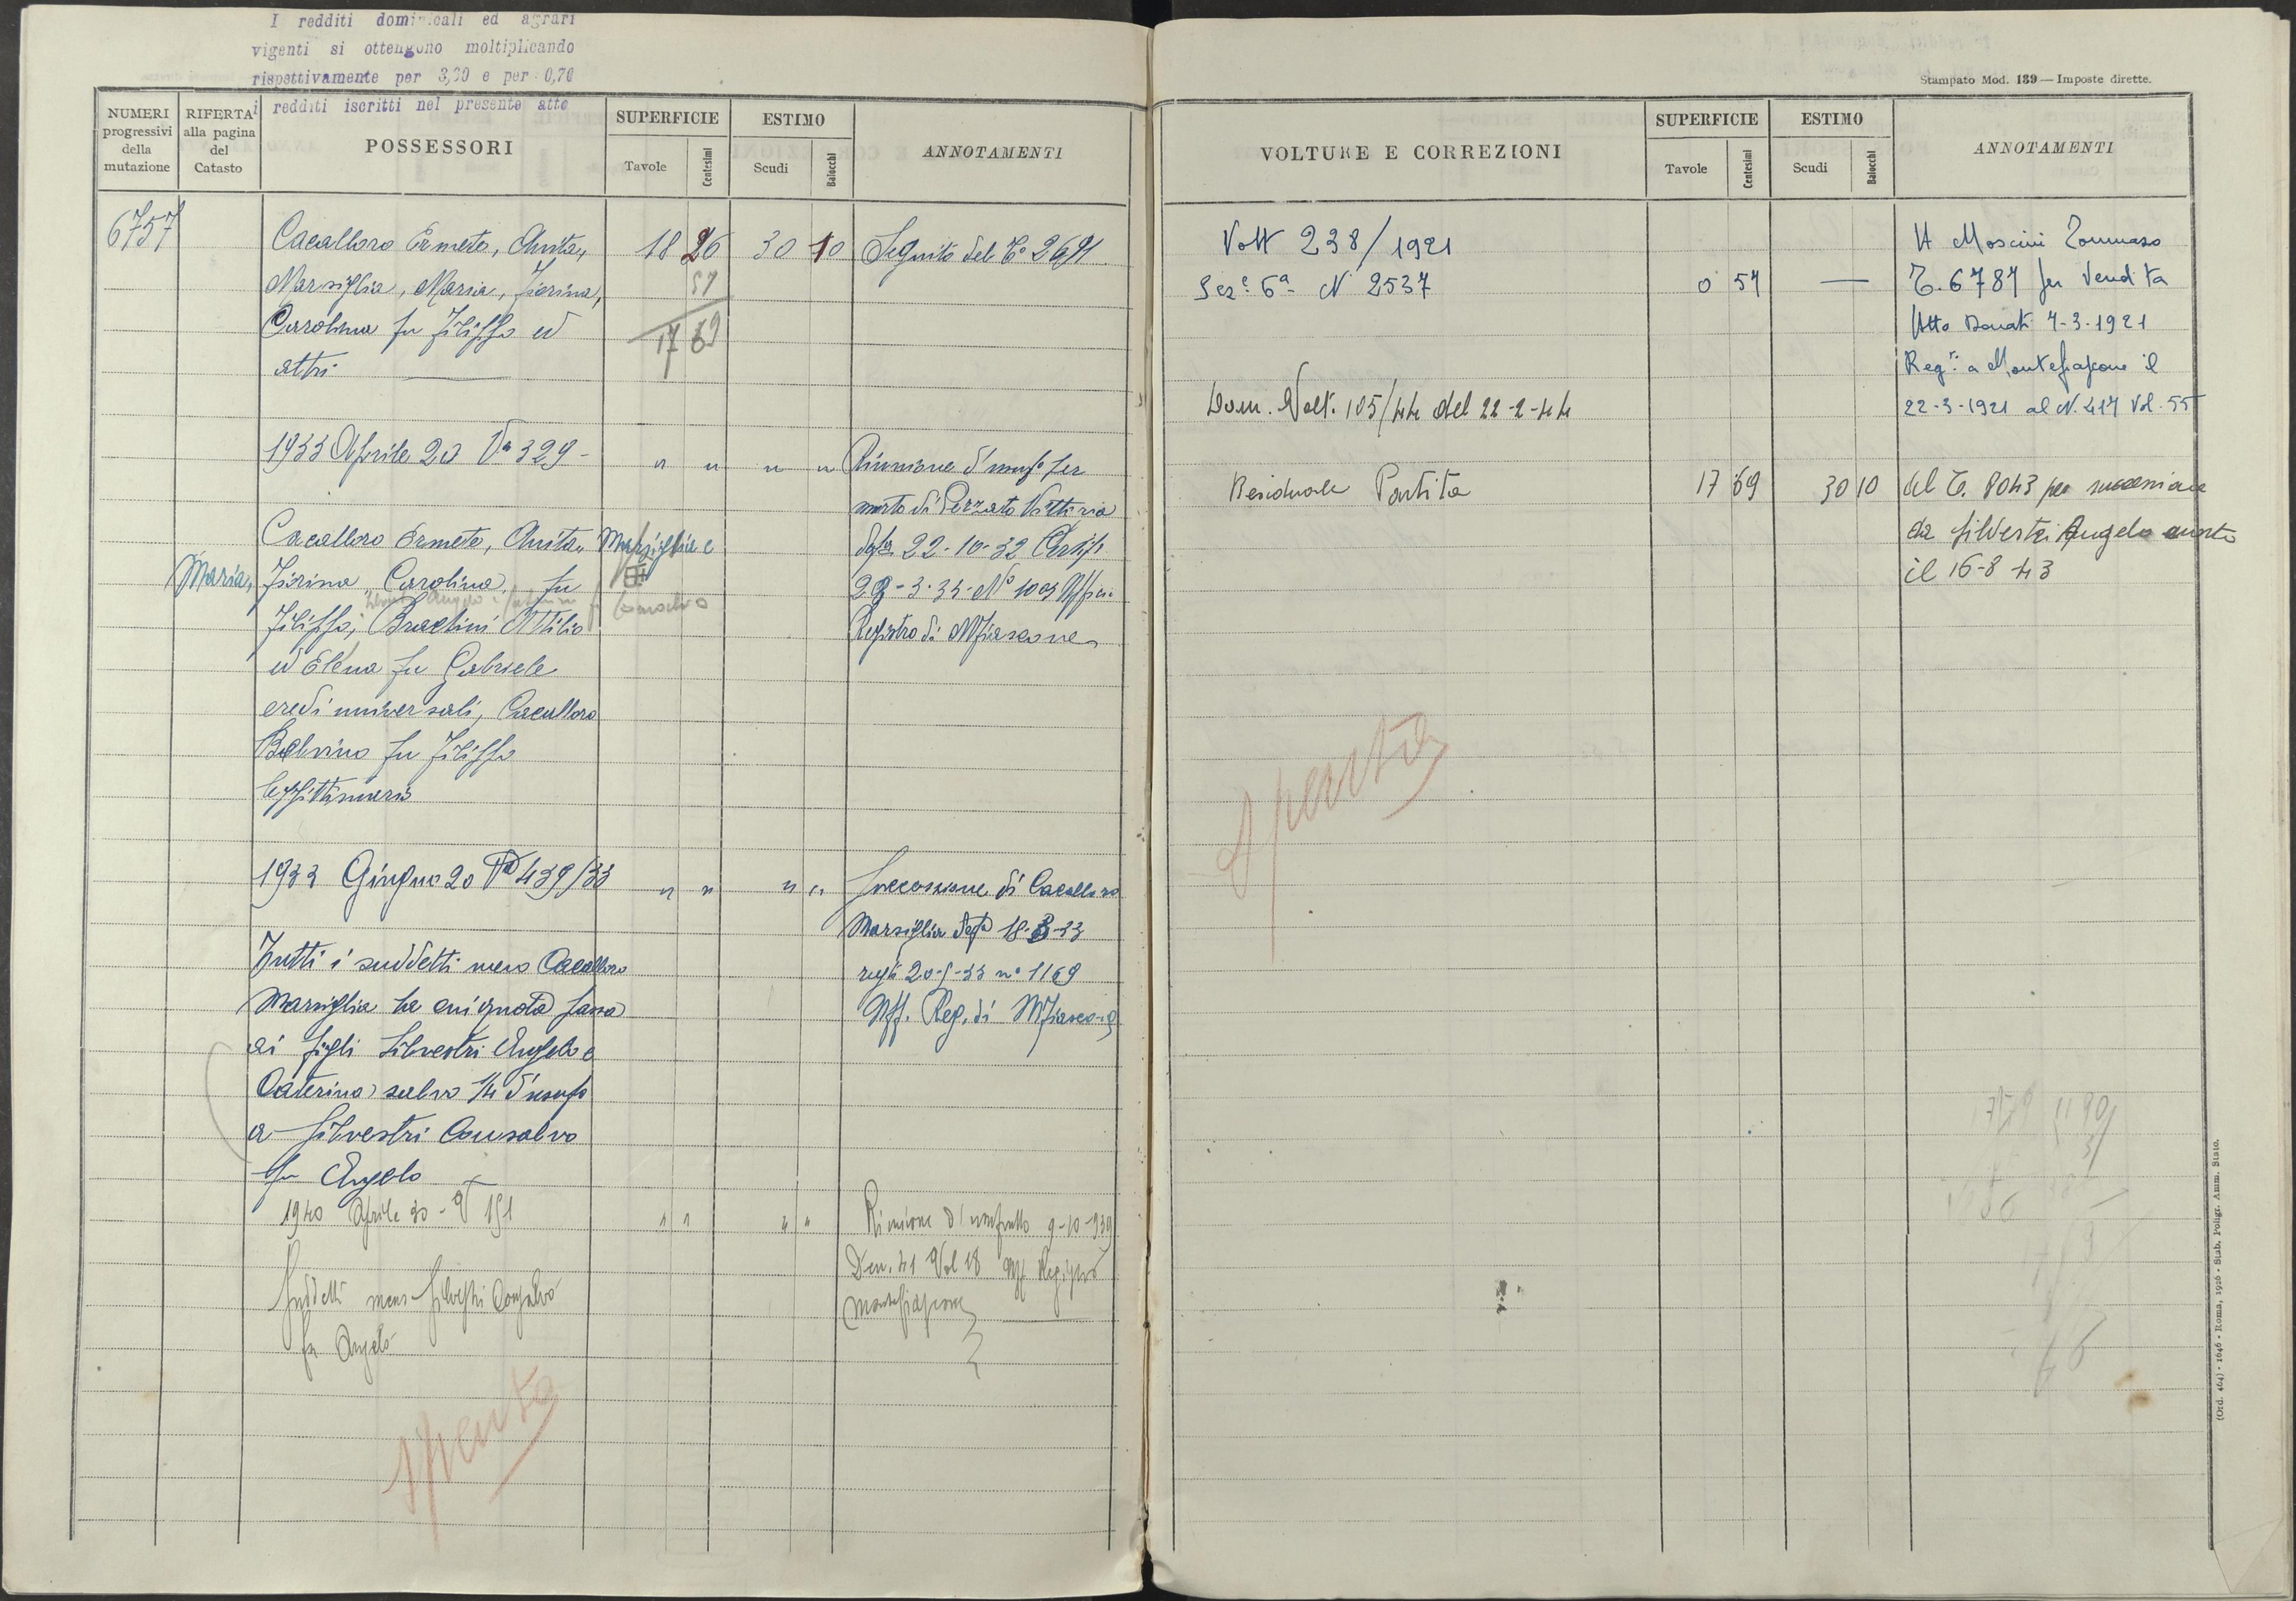 I redditi dominicali ed agrari
vigenti si ottengono moltiplicando
rispettivamente per 3,00 e per 0,70
i redditi iscritti nel presente atto
NUMERI progressivi della mutazione
RIFERTA alla pagina del Catasto
POSSESSORI
SUPERFICIE
Tavole
Centesimi
ESTIMO
Scudi
Baiocchi
ANNOTAMENTI
6757
Cacalloro Ermete, Anita, 18 26 30 10 Seguito del T° 2691
Marsiglia, Maria, Fiorina, 57
Carolina fu Filippo ed 17 69
altri
1933 Aprile 20 Va 329 - " " " " Riunione d'usuf° per
morte di Perzato Vittoria
Cacalloro Ermete, Anita, Marsiglia e 22-10-32
Maria, Fiorina, Carolina, fu
Filippo; Brachini Attilio Registro di MFiascone
ed Elena fu Gabriele
eredi universali, Cacalloro
Balvino fu Filippo
legittimario
1933 Giugno 20 Va 439/33 " " " " Successione di Cacalloro
Marsiglia 18-3-33
Tutti i suddetti meno Cacalloro 20-5-33 n° 1169
Marsiglia la cui quota passa Uff. Reg. di MFiascone
ai figli Silvestri Angelo e
Caterina salvo 1/4 d'usuf°
a Silvestri Consalvo
fu Angelo
1940 Aprile 30 - V 191 " " " " Riunione d'usufrutto 9-10-939
Den. 41 Vol 18 Uff Registro
Suddetti meno Silvestri Consalvo Montefiascone
fu Angelo
Spento
Stampato Mod. 139 — Imposte dirette.
VOLTURE E CORREZIONI
SUPERFICIE
Tavole
Centesimi
ESTIMO
Scudi
Baiocchi
ANNOTAMENTI
Volt 238/1921 A Moscini Tommaso
Sez.e 6a N 2537 0 57 — T. 6787 per Vendita
Atto Donati 7-3-1921
Reg.to a Montefiascone il
Dom. Volt. 105/44 del 22-2-44 22-3-1921 al N. 417 Vol. 55
Residuale Partita 17 69 30 10 al T. 8043 per successione
da Silvestri Angelo morto
il 16-8-43
Spento
(Ord. 464) - 1646 - Roma, 1926 - Stab. Poligr. Amm. Stato.